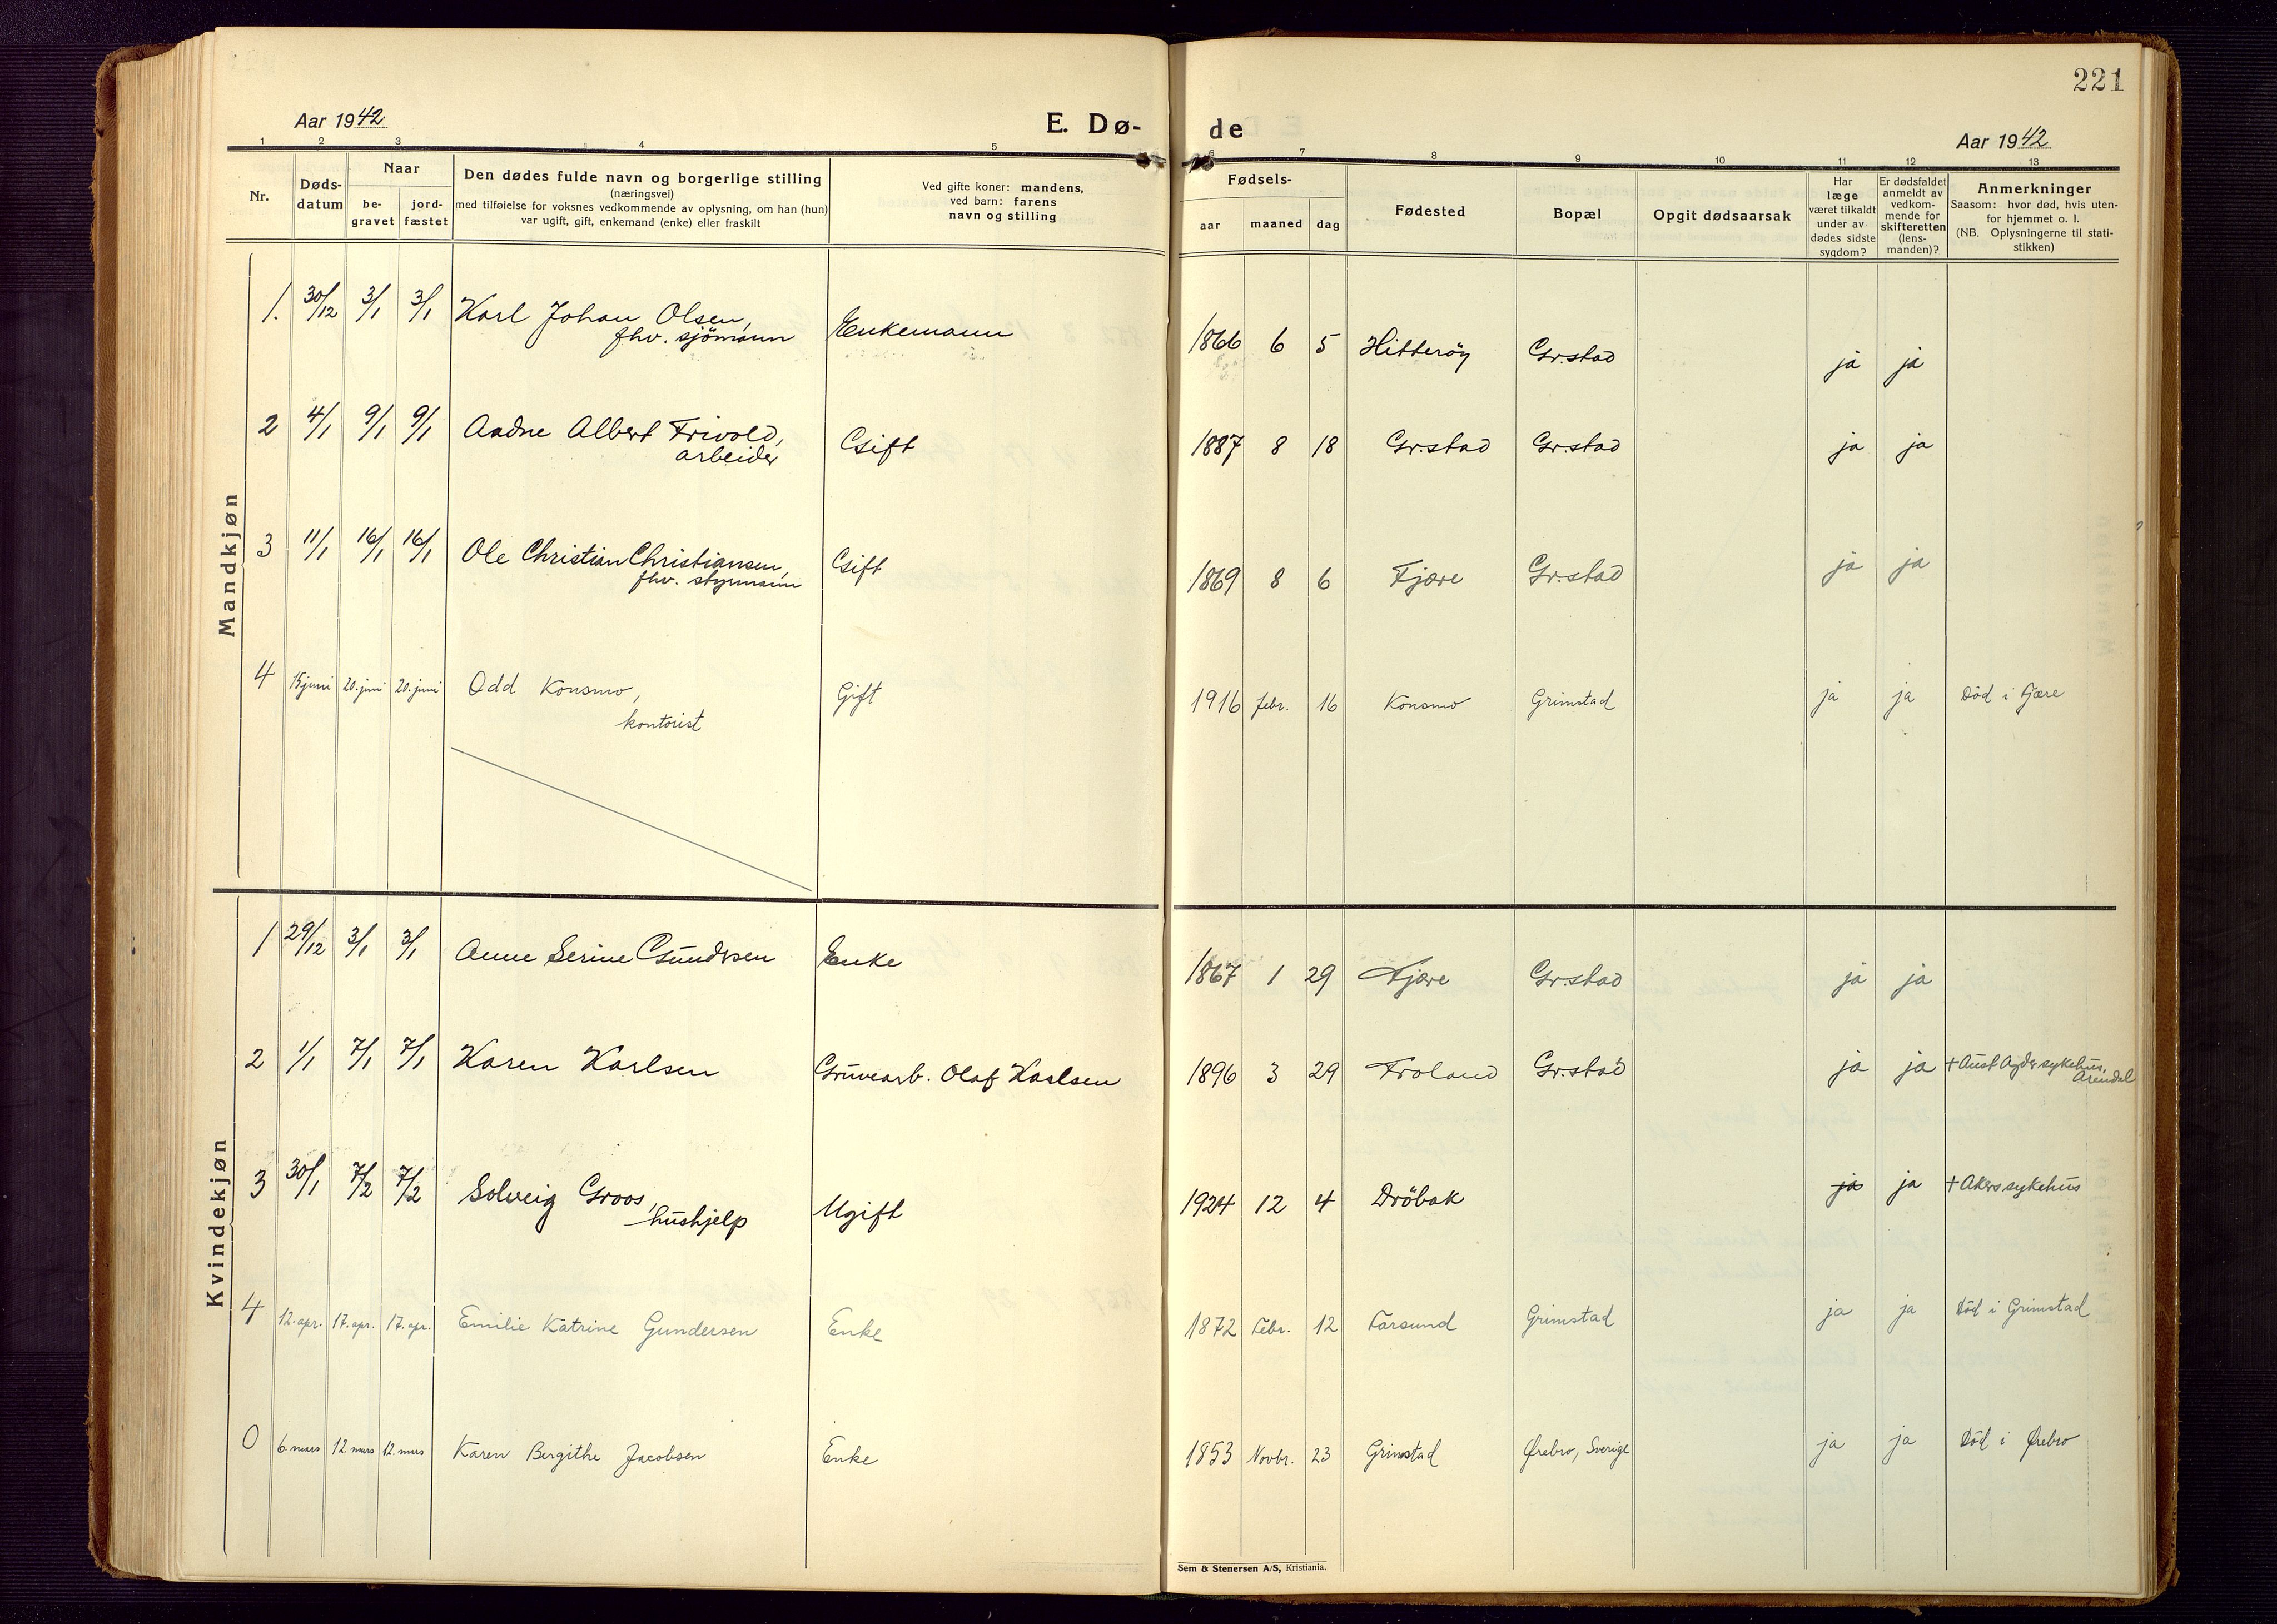 221
Aar 1942
E. Dø-
de
Aar 1942
1 2 3 4 5
6 7 8 9 10 11 12 13
Nr.
Døds-
datum
Naar
be-
gravet
jord-
fæstet
Den dødes fulde navn og borgerlige stilling
(næringsvei)
med tilføielse for voksnes vedkommende av oplysning, om han (hun)
var ugift, gift, enkemand (enke) eller fraskilt
Ved gifte koner: mandens,
ved barn: farens
navn og stilling
Fødsels-
aar maaned dag
Fødested
Bopæl
Opgit dødsaarsak
Har
læge
været tilkaldt
under av-
dødes sidste
sygdom?
Er dødsfaldet
anmeldt av
vedkom-
mende for
skifteretten
(lens-
manden)?
Anmerkninger
Saasom: hvor død, hvis uten-
for hjemmet o. l.
(NB. Oplysningerne til stati-
stikken)
Mandkjøn
1. 30/12 3/1 3/1 Karl Johan Olsen, Enkemann 1866 6 5 Hitterøy Gr.stad ja ja
fhv. sjömann
2 4/1 9/1 9/1 Aadne Albert Frivold, Gift 1887 8 18 Gr.stad Gr.stad ja ja
arbeider
3 11/1 16/1 16/1 Ole Christian Christiansen, Gift 1869 8 6 Fjære Gr.stad ja ja
fhv. styrmann
4 15 juni 20. juni 20. juni Odd Konsmo, Gift 1916 febr. 16 Konsmo Grimstad ja ja Död i Fjære
kontorist
Kvindekjøn
1 29/12 3/1 3/1 Anne Serine Gundersen Enke 1867 1 29 Fjære Gr.stad ja ja
2 1/1 7/1 7/1 Karen Karlsen Gruvearb. Olaf Karlsen 1896 3 29 Froland Gr.stad ja ja + Aust Agder sykehus,
Arendal
3 30/1 7/2 7/2 Solveig Groos, Ugift 1924 12 4 Dröbak ja ja + Akers sykehus
hushjelp
4 12. apr. 17. apr. 17. apr. Emilie Katrine Gundersen Enke 1872 Febr. 12 Farsund Grimstad ja ja Död i Grimstad
0 6. mars 12. mars 12. mars Karen Bergithe Jacobsen Enke 1853 Novbr. 23 Grimstad Ørebro, Sverige ja ja Död i Ørebro
Sem & Stenersen A/S, Kristiania.